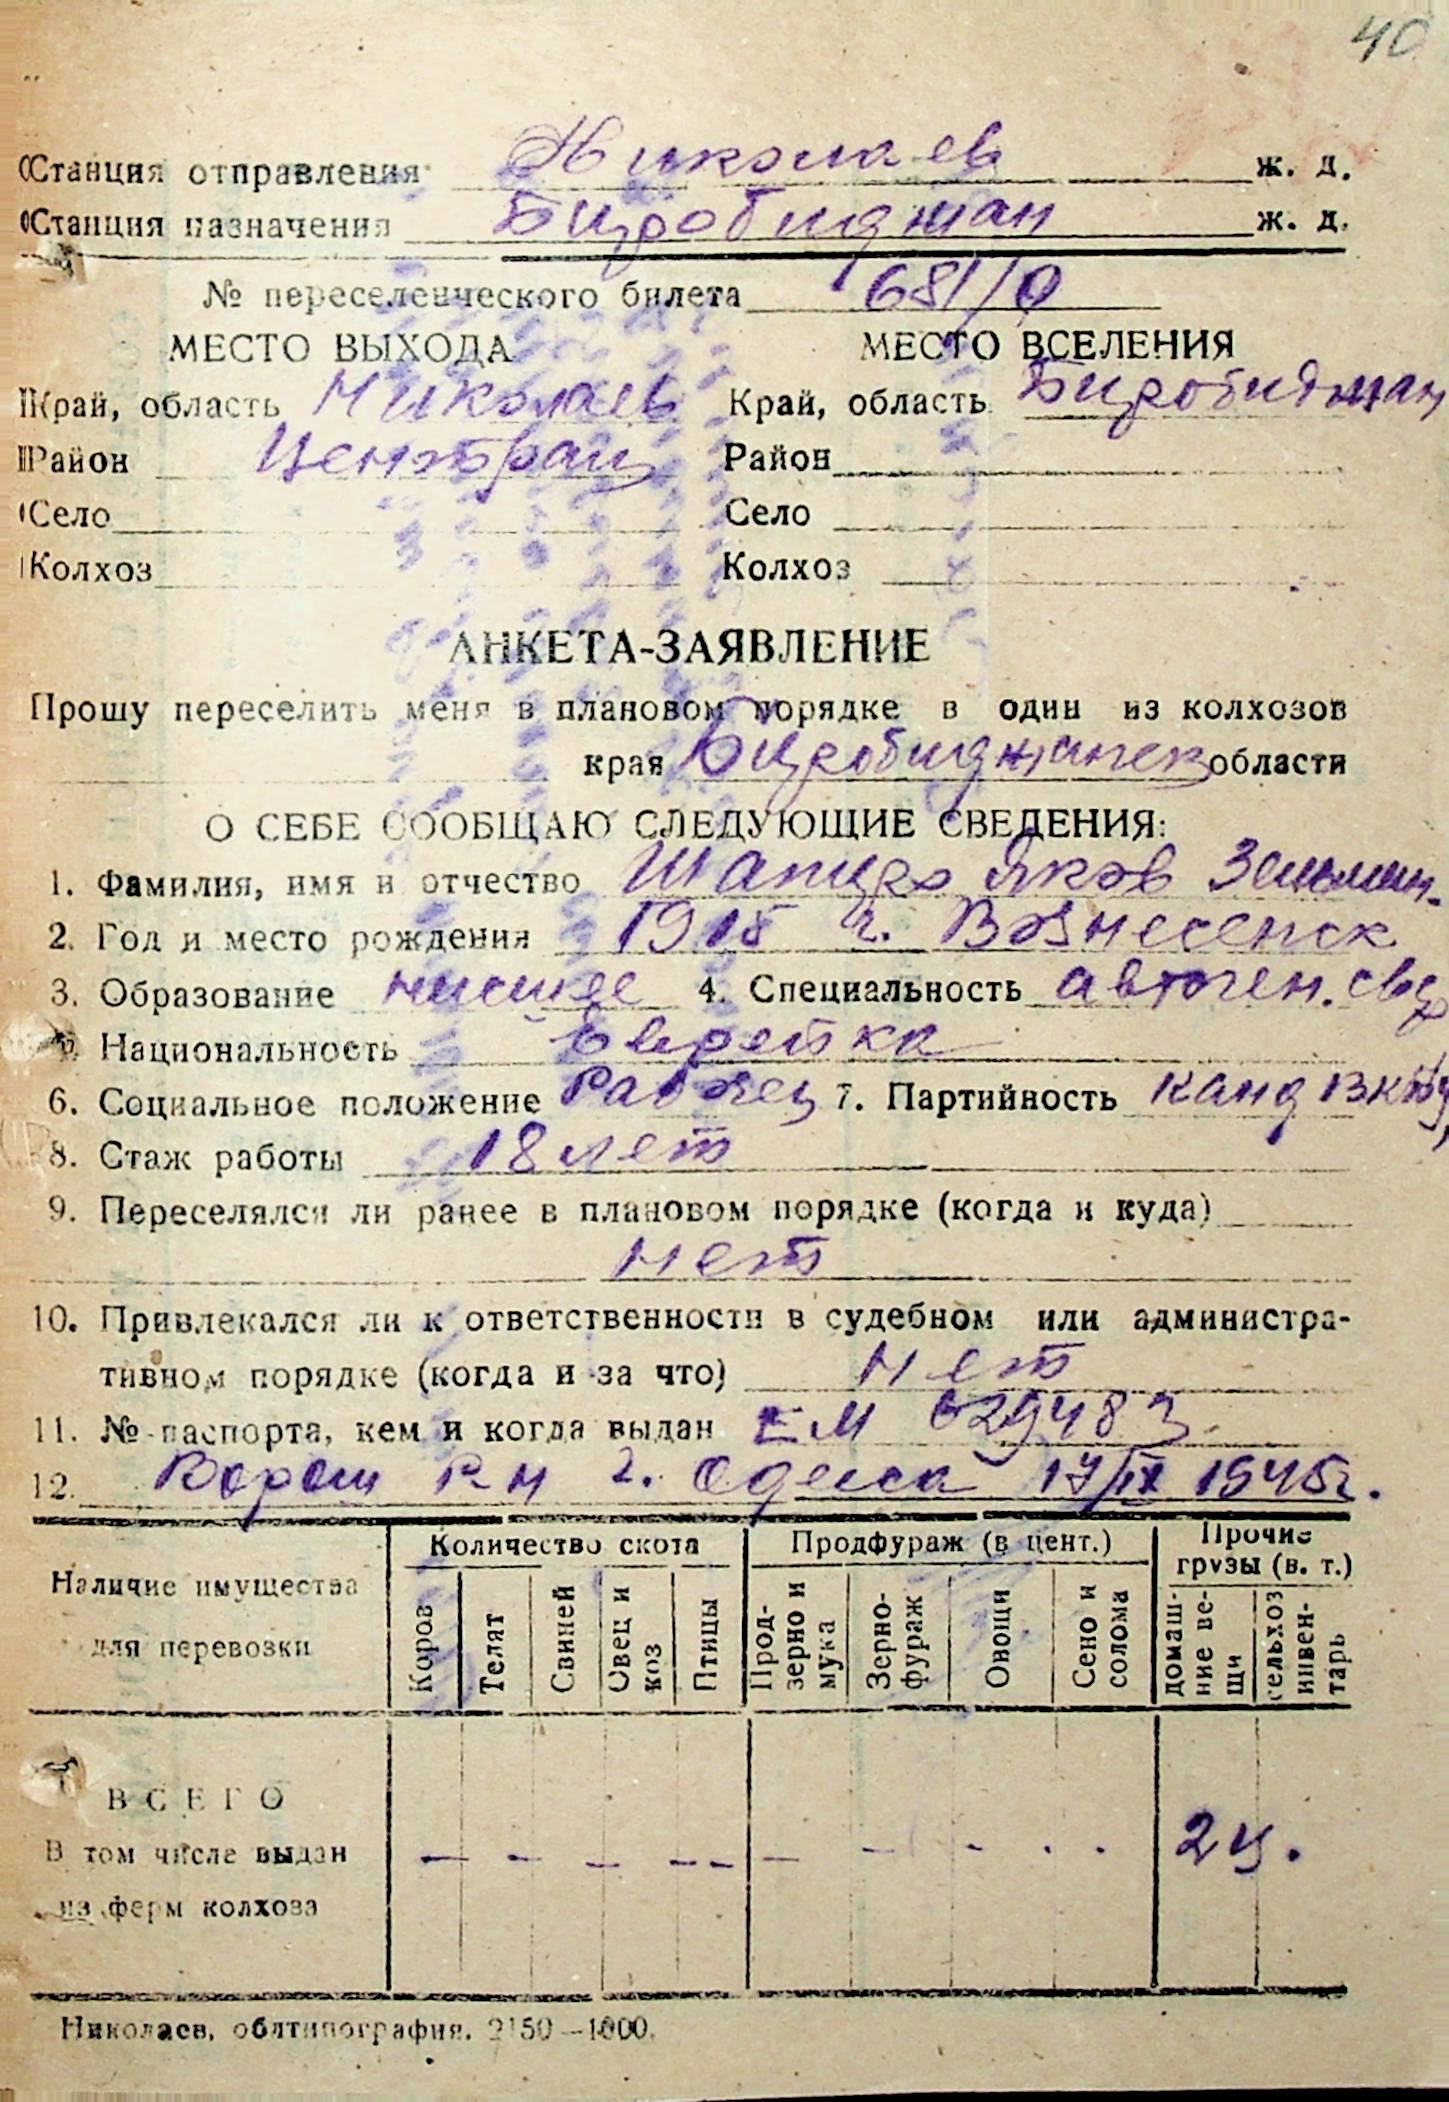 40
Станция отправления Николаев ж. д.
Станция назначения Биробиджан ж. д.
№ переселенческого билета 681/0
МЕСТО ВЫХОДА МЕСТО ВСЕЛЕНИЯ
Край, область Николаев Край, область Биробиджан
Район Централ Район
Село Село
Колхоз Колхоз
АНКЕТА-ЗАЯВЛЕНИЕ
Прошу переселить меня в плановом порядке в один из колхозов
края Биробиджанск области
О СЕБЕ СООБЩАЮ СЛЕДУЮЩИЕ СВЕДЕНИЯ:
1. Фамилия, имя и отчество Шапиро Яков Зельман.
2. Год и место рождения 1915 г. Вознесенск
3. Образование нисшее 4. Специальность автоген. свар
5. Национальность Еврейка
6. Социальное положение Рабочец 7. Партийность канд ВКПб,
8. Стаж работы 18 лет
9. Переселялся ли ранее в плановом порядке (когда и куда)
нет
10. Привлекался ли к ответственности в судебном или администра-
тивном порядке (когда и за что) нет
11. № паспорта, кем и когда выдан ЕМ 629483
12. Ворош Р-н г. Одесса 17/IX 1945г.
Наличие имущества для перевозки
Количество скота Продфураж (в цент.) Прочие грузы (в. т.)
Коров Телят Свиней Овец и коз Птицы Прод-зерно и мука Зерно-фураж Овощи Сено и солома домаш-ние ве-щи сельхоз инвен-тарь
ВСЕГО
В том числе выдан — — — — — — — - . . 2 ц.
из ферм колхоза
Николаев, облтипография. 2150—1000.